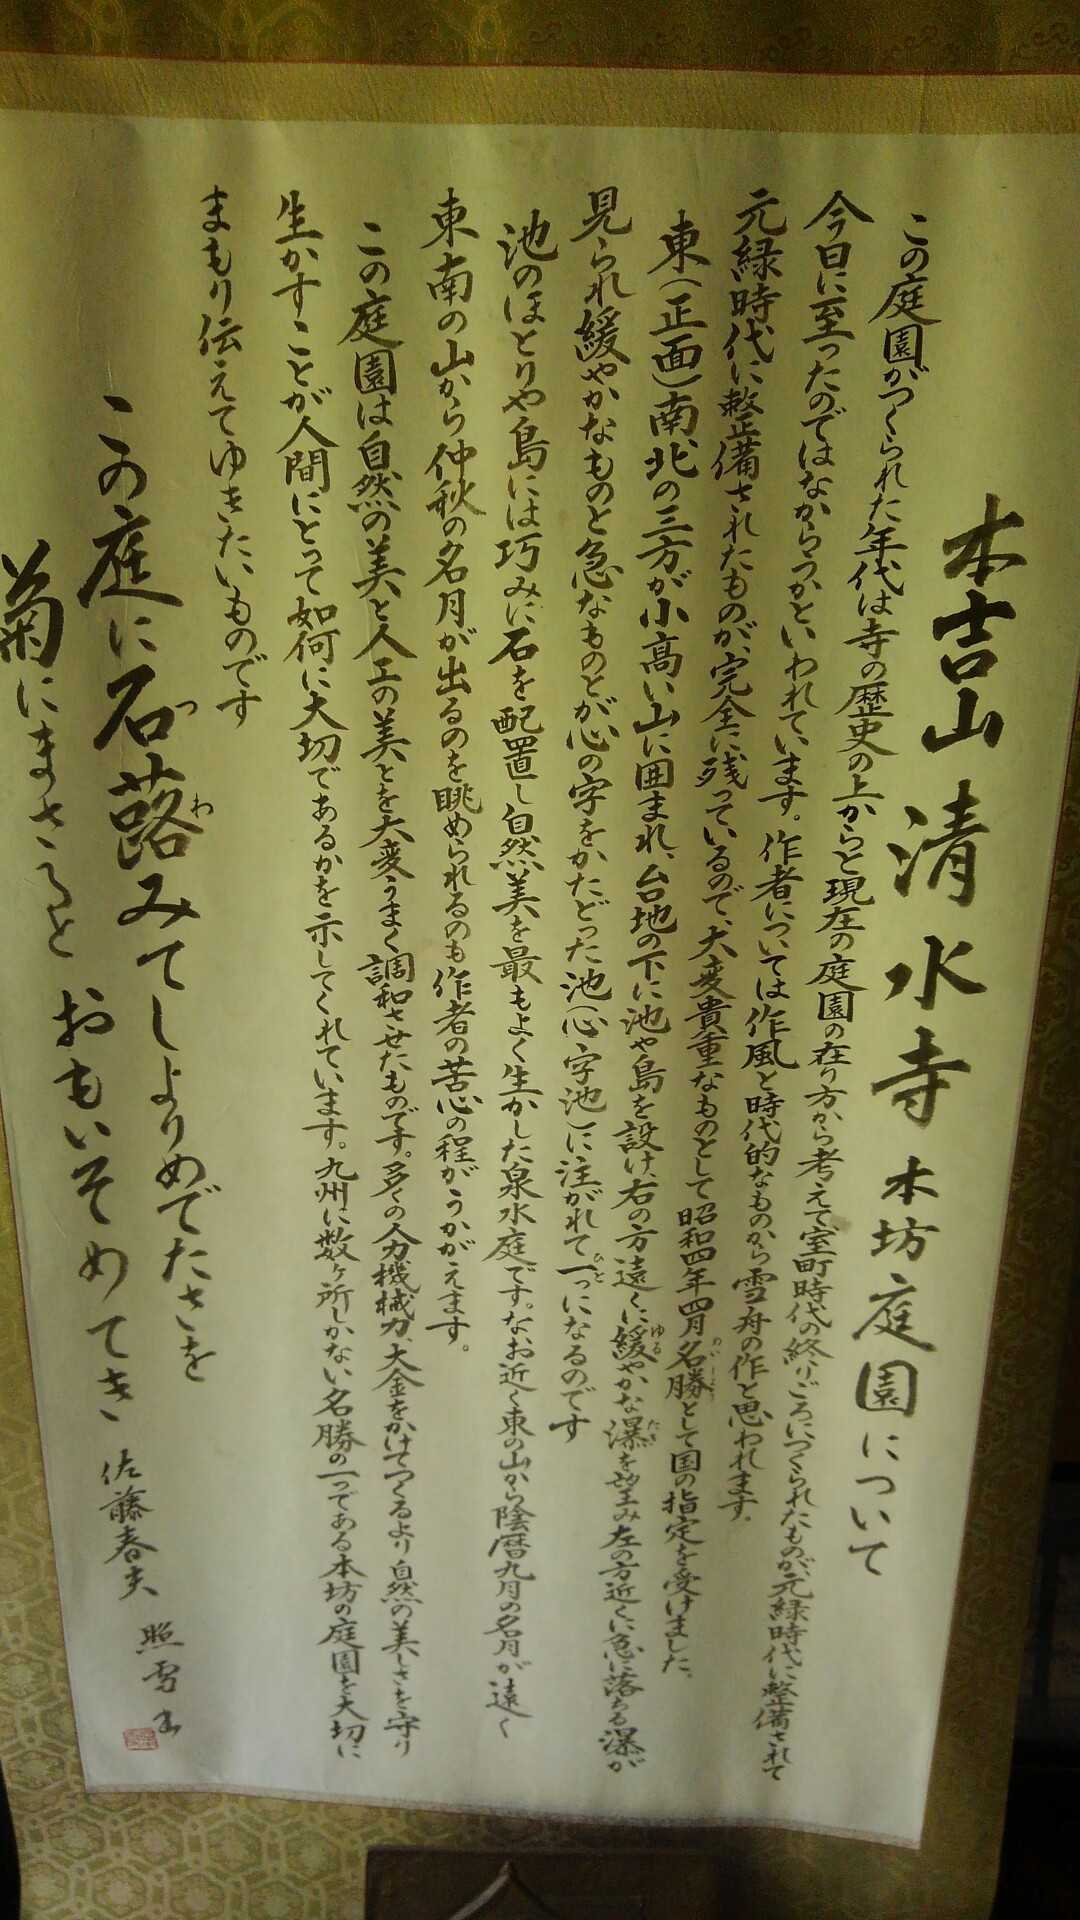 本吉山清水寺本坊庭園について
この庭園がつくられた年代は寺の歴史の上からと現在の庭園の在り方から考えて室町時代の終りごろにつくられたものが、元緑時代に整備されて
今日に至ったのではなからうかといわれています。作者については作風と時代的なものから雪舟の作と思われます。
元緑時代に整備されたものが、完全に残っているので、大変貴重なものとして昭和四年四月名勝として国の指定を受けました。
東(正面)南北の三方が小高い山に囲まれ、台地の下に池や島を設け、右の方遠くに緩やかな瀑を望み左の方近くに急に落ちる瀑が
見られ緩やかなものと急なものとが心の字をかたどった池(心字池)に注がれて一つになるのです
池のほとりや島には巧みに石を配置し自然美を最もよく生かした泉水庭です。なお近く東の山から陰暦九月の名月が遠く
東南の山から仲秋の名月が出るのを眺められるのも作者の苦心の程がうかがえます。
この庭園は自然の美と人工の美とを大変うまく調和させたものです。多くの人力、機械力、大金をかけてつくるより自然の美しさを守り
生かすことが人間にとって如何に大切であるかを示してくれています。九州に数ヶ所しかない名勝の一つである本坊の庭園を大切に
まもり伝えてゆきたいものです
この庭に石蕗みてしよりめでたさを
菊にまさると おもいそめてき 佐藤春夫
照雪